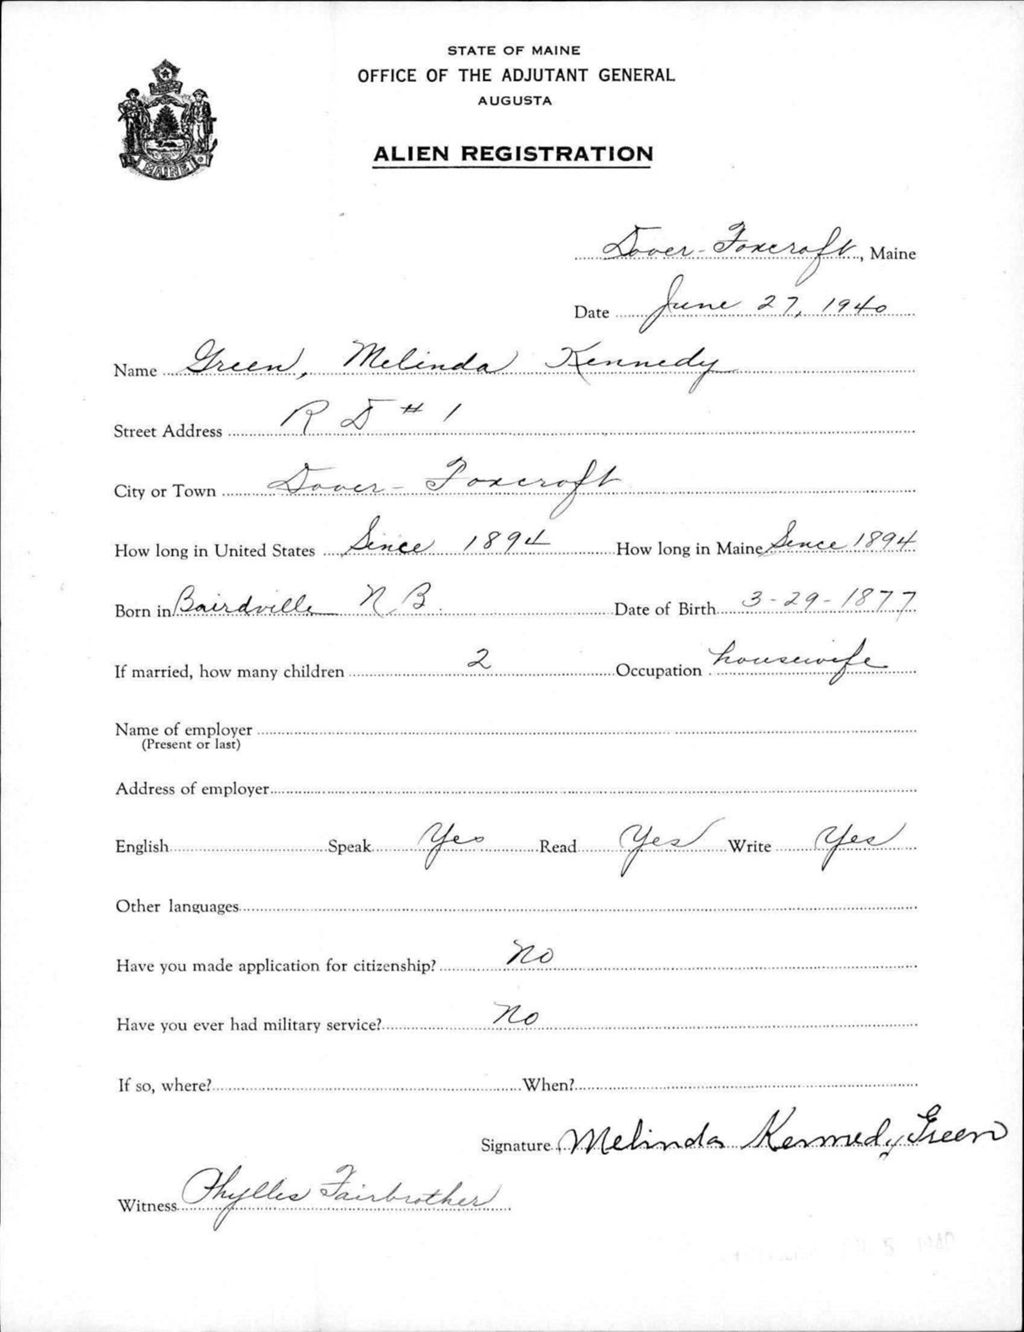 STATE OF MAINE
OFFICE OF THE ADJUTANT GENERAL
AUGUSTA
ALIEN REGISTRATION
MAINE
Dover-Foxcroft, Maine
Date June 27, 1940
Name Green, Melinda Kennedy
Street Address R D #1
City or Town Dover-Foxcroft
How long in United States Since 1894 How long in Maine Since 1894
Born in Bairdville N.B. Date of Birth 3-29-1877
If married, how many children 2 Occupation housewife
Name of employer
(Present or last)
Address of employer
English Speak Yes Read Yes Write Yes
Other languages
Have you made application for citizenship? No
Have you ever had military service? No
If so, where? When?
Signature Melinda Kennedy Green
Witness Phyllis Fairbrother